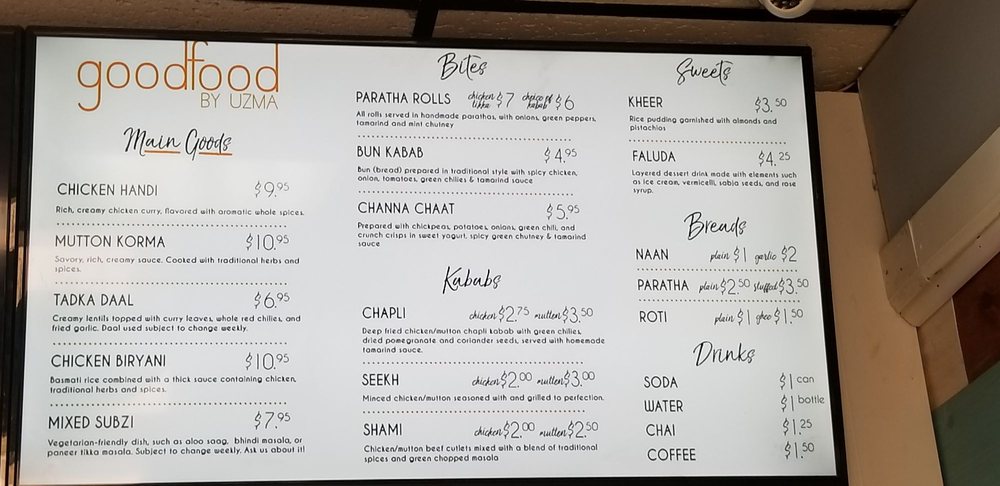 goodfood
BY UZMA
Main Goods
CHICKEN HANDI $9.95
Rich, creamy chicken curry, flavored with aromatic whole spices.
MUTTON KORMA $10.95
Savory, rich, creamy sauce. Cooked with traditional herbs and
spices.
TADKA DAAL $6.95
Creamy lentils topped with curry leaves, whole red chilies, and
fried garlic. Daal used subject to change weekly.
CHICKEN BIRYANI $10.95
Basmati rice combined with a thick sauce containing chicken,
traditional herbs and spices.
MIXED SUBZI $7.95
Vegetarian-friendly dish, such as aloo saag, bhindi masala, or
paneer tikka masala. Subject to change weekly. Ask us about it!
Bites
PARATHA ROLLS chicken tikka $7 choice of kabab $6
All rolls served in handmade parathas, with onions, green peppers,
tamarind and mint chutney
BUN KABAB $4.95
Bun (bread) prepared in traditional style with spicy chicken,
onion, tomatoes, green chilies & tamarind sauce
CHANNA CHAAT $5.95
Prepared with chickpeas, potatoes, onions, green chili, and
crunch crisps in sweet yogurt, spicy green chutney & tamarind
sauce
Kababs
CHAPLI chicken $2.75 mutton $3.50
Deep fried chicken/mutton chapli kabab with green chilies,
dried pomegranate and coriander seeds, served with homemade
tamarind sauce.
SEEKH chicken $2.00 mutton $3.00
Minced chicken/mutton seasoned with and grilled to perfection.
SHAMI chicken $2.00 mutton $2.50
Chicken/mutton beef cutlets mixed with a blend of traditional
spices and green chopped masala
Sweets
KHEER $3.50
Rice pudding garnished with almonds and
pistachios
FALUDA $4.25
Layered dessert drink made with elements such
as ice cream, vermicelli, sabja seeds, and rose
syrup.
Breads
NAAN plain $1 garlic $2
PARATHA plain $2.50 stuffed $3.50
ROTI plain $1 ghee $1.50
Drinks
SODA $1 can
WATER $1 bottle
CHAI $1.25
COFFEE $1.50